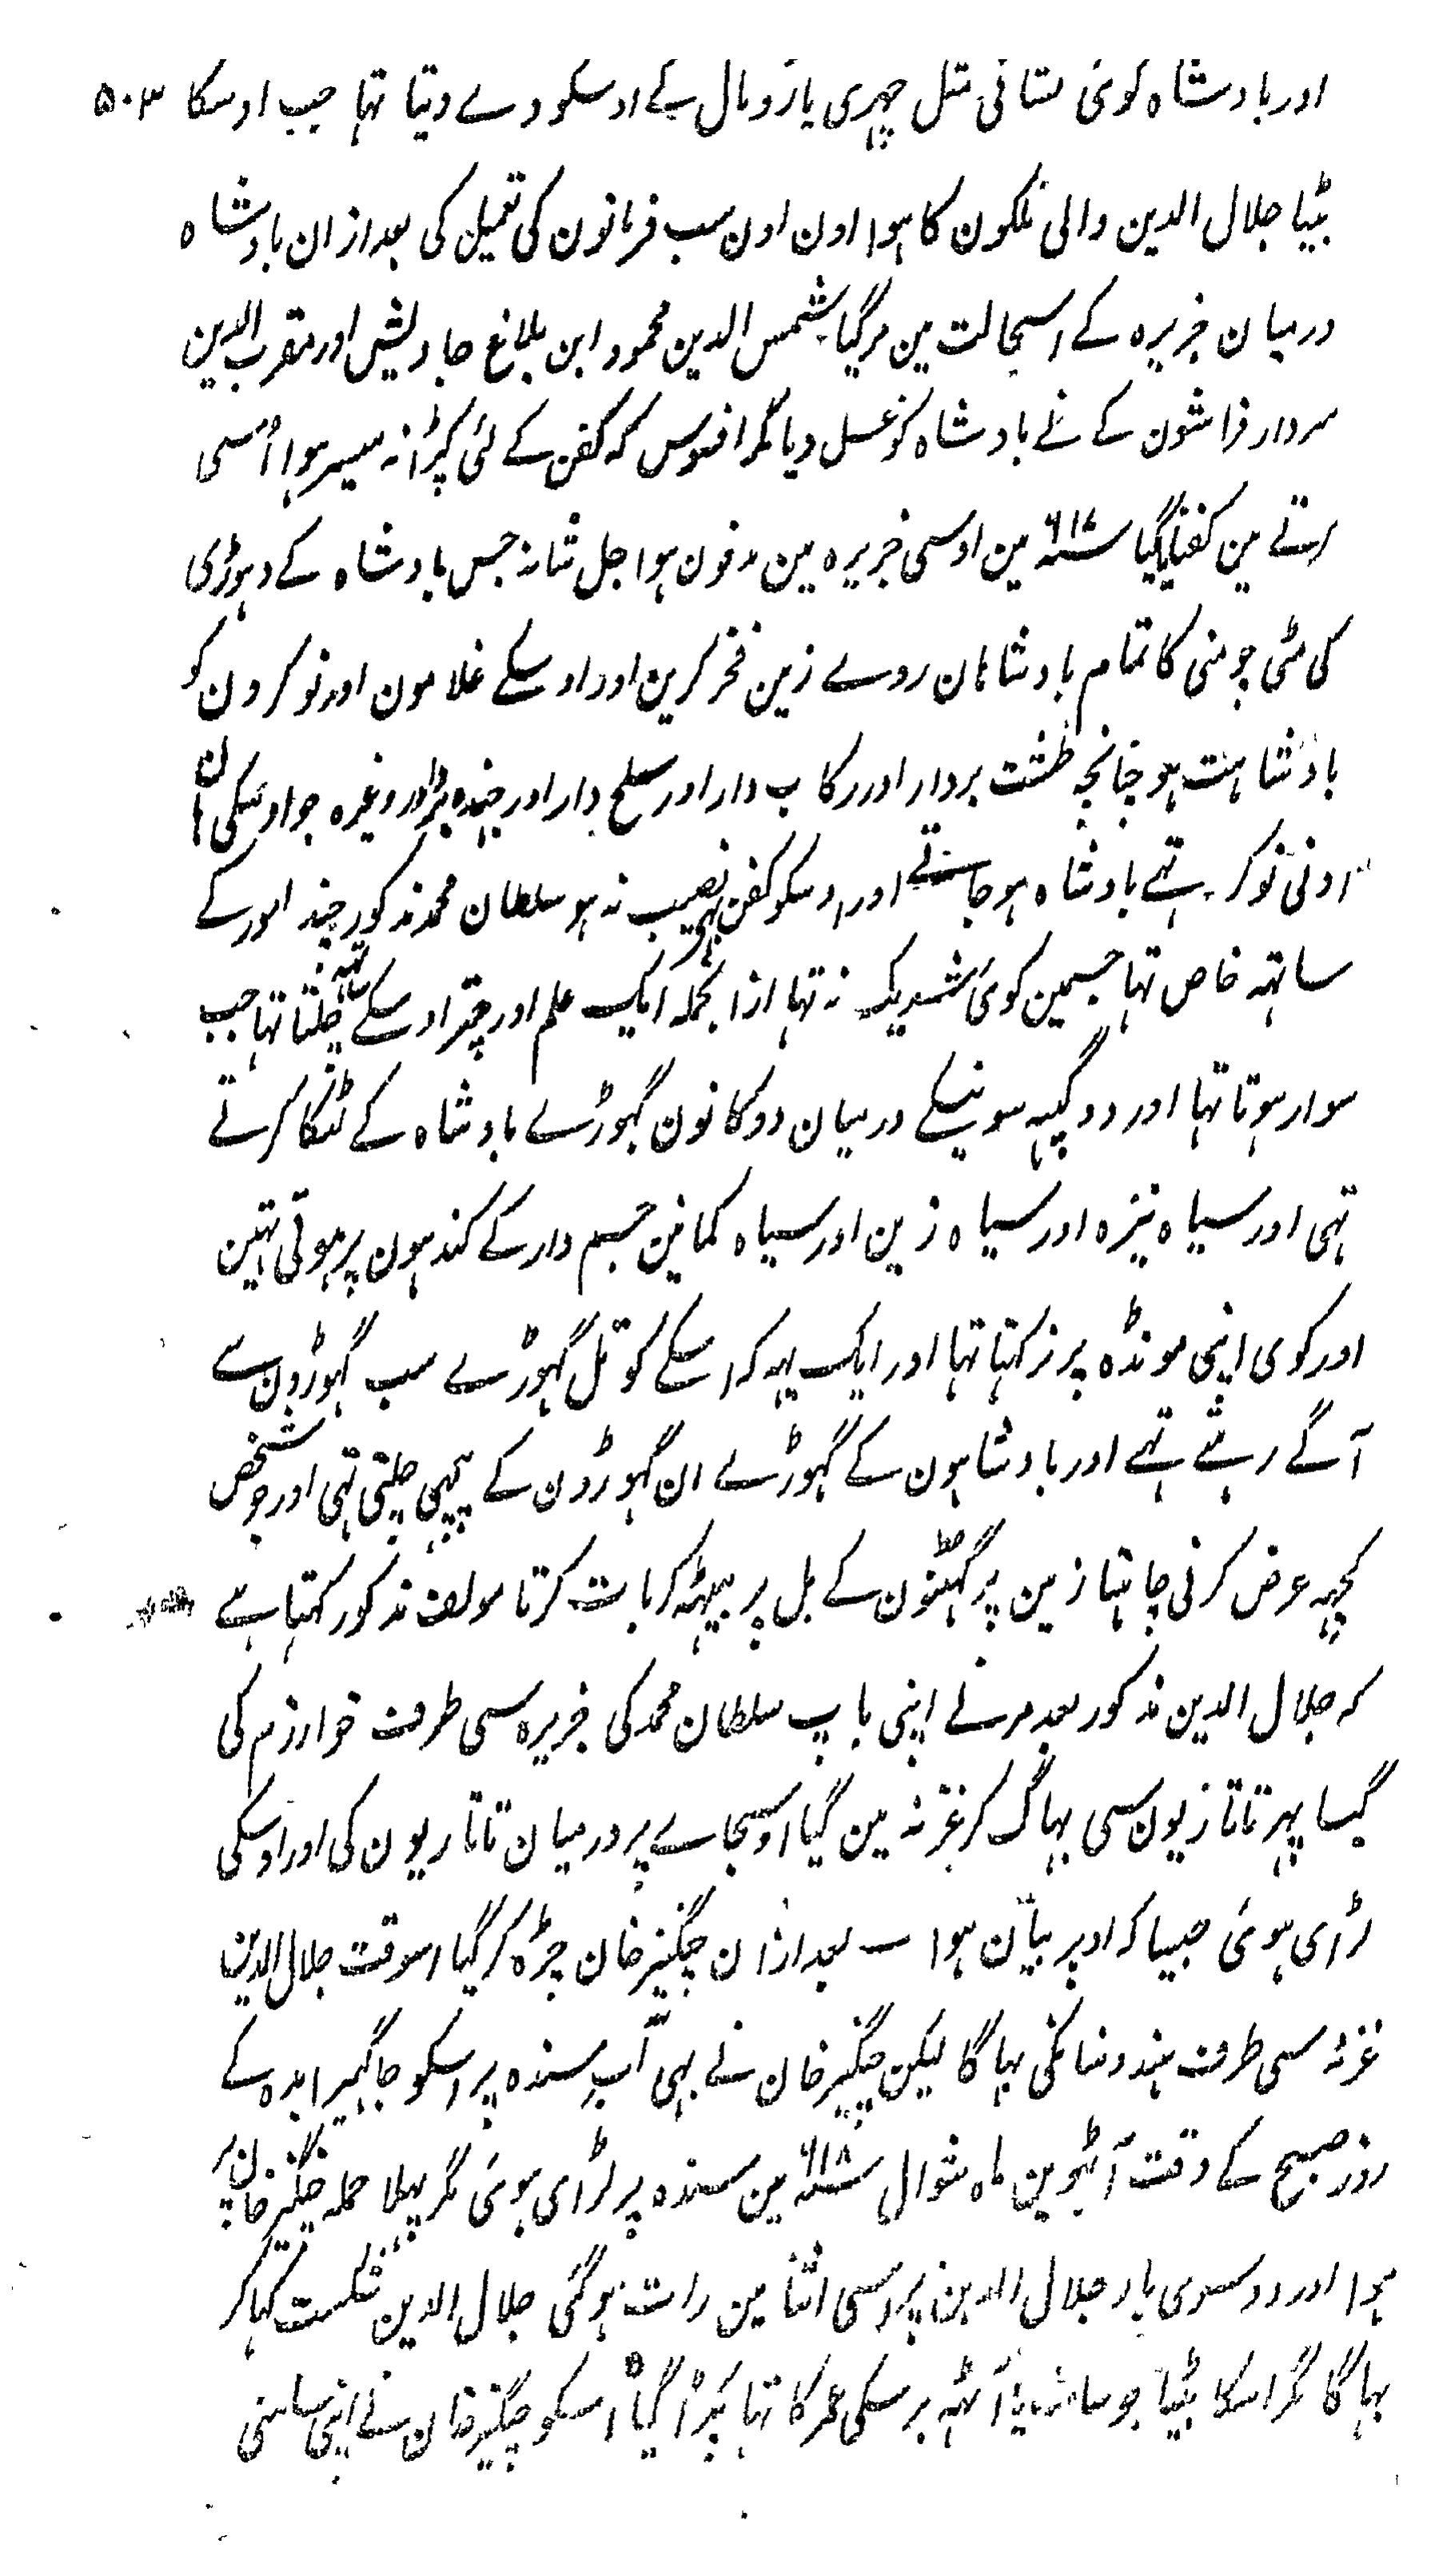 اور بادشاہ کوئی نشانی مثل چہری یا رومال کے اوسکو دے دیتا تہا جب اوسکا ۵۰۳
بیٹا جلال الدین والی ملکون کا ہوا اون اون سب فرمانون کی تعمیل کی بعد ازان بادشاہ
درمیان جزیرہ کے اسیحالت مین مرگیا شمس الدین محمود ابن بلاغ جاویش اور مقرب الدین
سردار فراشون کے نے بادشاہ کو غسل دیا مگر افسوس کہ کفن کے لئی کپڑا نہ میسر ہوا اُسی
مین کفنایا گیا ۶۱۷؁ مین اوسی جزیرہ مین مدفون ہوا جل شانہ جس بادشاہ کے دہوڑی
کی مٹی چومنی کا تمام بادشاہان روے زمین فخر کرین اور اوسکے غلامون اور نوکرون کو
بادشاہت ہو چنانچہ طشت بردار اور رکاب دار اور سلح دار اور وغیرہ جو اوسکی ان
ادنی نوکر تہے بادشاہ ہو جاتے اور اوسکو کفن بہی نصیب نہ ہو سلطان محمد مذکور چند امور کے
ساتہہ خاص تہا جسمین کوئی شریک نہ تہا ازانجملہ ایک علم اور چتر اوسکے ساتہہ چلتا تہا جب
سوار ہوتا تہا اور دو سونیکے درمیان دو کانون گہوڑے بادشاہ کے لٹکا کرتے
تہی اور سیاہ نیزہ اور سیاہ زین اور سیاہ کمانین دار کے کندہون پر ہوتی تہین
اور کوی اپنی مونڈہ پر نرکہتا تہا اور ایک یہہ کہ اسکے کوتل گہوڑے سب گہوڑون سے
آگے رہتے تہے اور بادشاہون کے گہوڑے ان گہوڑون کے پیچہی چلتی تہی اور جو شخص
کچہہ عرض کرنی چاہتا زمین پر گہٹنون کے بل پر بیٹہہ کر بات کرتا مولف مذکور کہتا ہے
کہ جلال الدین مذکور بعد مرنے اپنی باپ سلطان محمد کی جزیرہ سی طرف خوارزم کی
گیا پہر تاتاریون سی بہاگ کر غزنہ مین گیا اوسجاے پر درمیان تاتاریون کی اور اوسکی
لڑای ہوئی جیسا کہ اوپر بیان ہوا ـ بعد ازان چنگیز خان چڑہ کر گیا اسوقت جلال الدین
غزنہ سی طرف ہندوستانکی بہاگا لیکن چنگیز خان نے بہی آب سندہ پر اسکو جا گہیرا بدہ کے
روز صبح کے وقت آٹہوین ماہ شوال ۶۱۸؁ مین سندہ پر لڑای ہوئی مگر پہلا حملہ چنگیز خان پر
ہوا اور دوسری بار جلال الدین پر اسی اثنا مین رات ہوگئی جلال الدین شکست کہا کر
بہاگا مگر اسکا بیٹا جو سات یا آٹہہ برسکی عمر کا تہا پکڑا گیا اسکو چنگیز خان نے اپنی سامنی